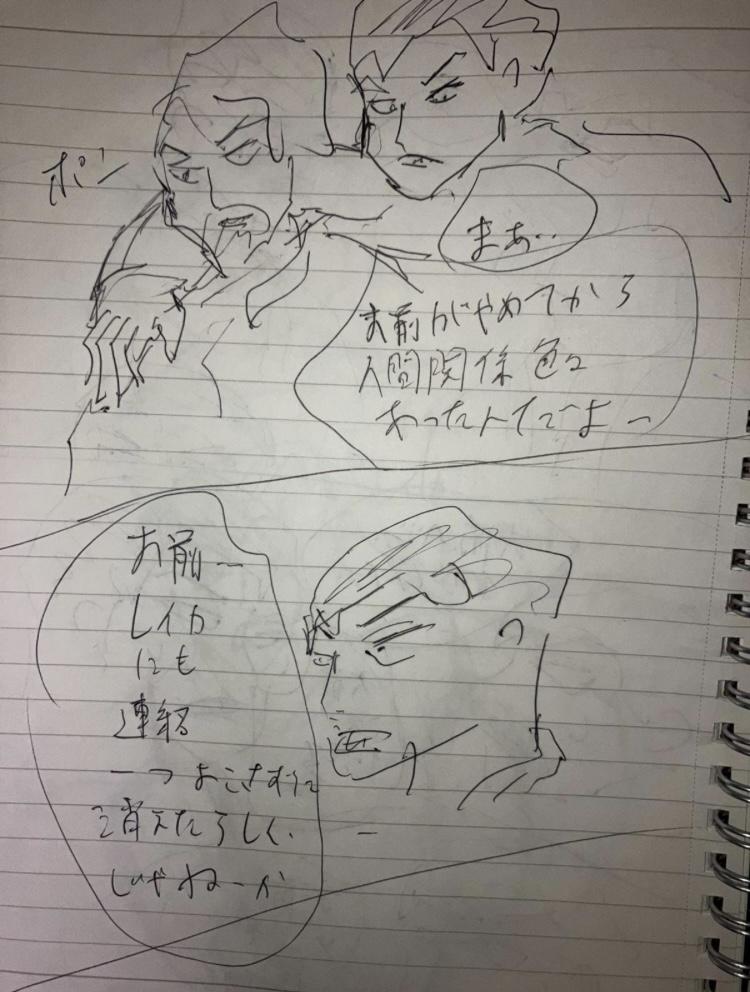 ポン
まぁ…
お前がやめてから
人間関係色々
あったんでさぁー
お前ー
レイカ
にも
連絡
一つよこさずに
消えたらしく
じゃねーか